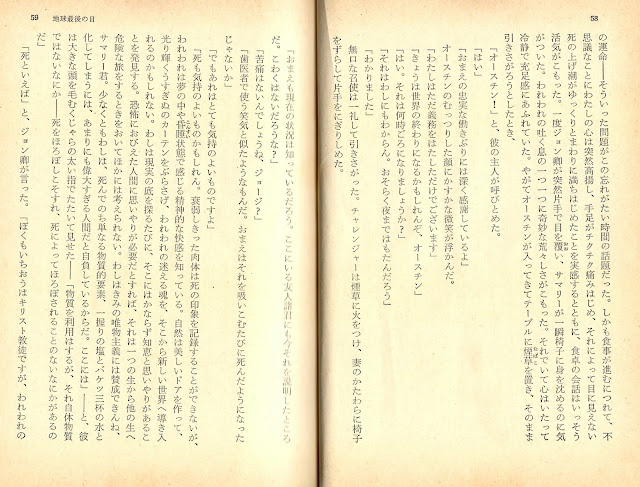 58
の運命――そういった問題がこの忘れがたい時間の話題だった。しかも食事が進むにつれて、不
思議なことにわたしの心は突然高揚し、手足がチクチク痛みはじめ、それによって目に見えない
死の上げ潮がゆっくりとまわりに満ちはじめたことを実感するとともに、食卓の会話はいっそう
活気がこもった。一度ジョン卿が突然片手で目を覆い、サマリーが一瞬椅子に身を沈めるのに気
がついた。われわれの吐く息の一つ一つに奇妙な荒々しさがこもった。それでいて心はいたって
冷静で充足感にあふれていた。やがてオースチンが入ってきてテーブルに煙草を置き、そのまま
引きさがろうとしたとき、
「オースチン!」と、彼の主人が呼びとめた。
「はい」
「おまえの忠実な働きぶりには深く感謝しているよ」
オースチンのむっつりした顔にかすかな微笑が浮かんだ。
「わたしはただ義務をはたしただけでございます」
「きょうは世界の終わりになるかもしれんぞ、オースチン」
「はい。それは何時ごろになりましょうか?」
「それはわしにもわからん。おそらく夜まではもたんだろう」
「わかりました」
無口な召使は一礼して引きさがった。チャレンジャーは煙草に火をつけ、妻のかたわらに椅子
をずらして片手をにぎりしめた。
59 地球最後の日
「おまえも現在の状況は知っているだろう。ここにいる友人諸君にも今それを説明したところ
だ。こわくはないだろうな?」
「苦痛はないでしょうね、ジョージ?」
「歯医者で使う笑気と似たようなもんだ。おまえはそれを吸いこむたびに死んだようになった
じゃないか」
「でもあれはとても気持のよいものですよ」
「死も気持のよいものかもしれん。衰弱しきった肉体は死の印象を記録することができないが、
われわれは夢の中や昏睡状態で感じる精神的な快感を知っている。自然は美しいドアを作って、
光り輝くうすぎぬのカーテンをぶらさげ、われわれの迷える魂を、そこから新しい世界へ導き入
れるのかもしれない。わしは現実の底を探るたびに、そこにはかならず知恵と思いやりがあるこ
とを発見する。恐怖におびえた人間に思いやりが必要だとすれば、それは一つの生から他の生へ
危険な旅をするときをおいてほかには考えられない。わしはきみの唯物主義には賛成できんね、
サマリー君。少なくともわしは、死んでのち単なる物質的要素、一握りの塩とバケツ三杯の水と
化してしまうには、あまりにも偉大すぎる人間だと自負しているからだ。ここには」――と、彼
は大きな頭を毛むくじゃらの太い指でたたいて見せた――「物質を利用はするが、それ自体物質
ではないなにか――死をほろぼしこそすれ、死によってほろぼされることのないなにかがあるの
だ」
「死といえば」と、ジョン卿が言った。「ぼくもいちおうはキリスト教徒ですが、われわれの